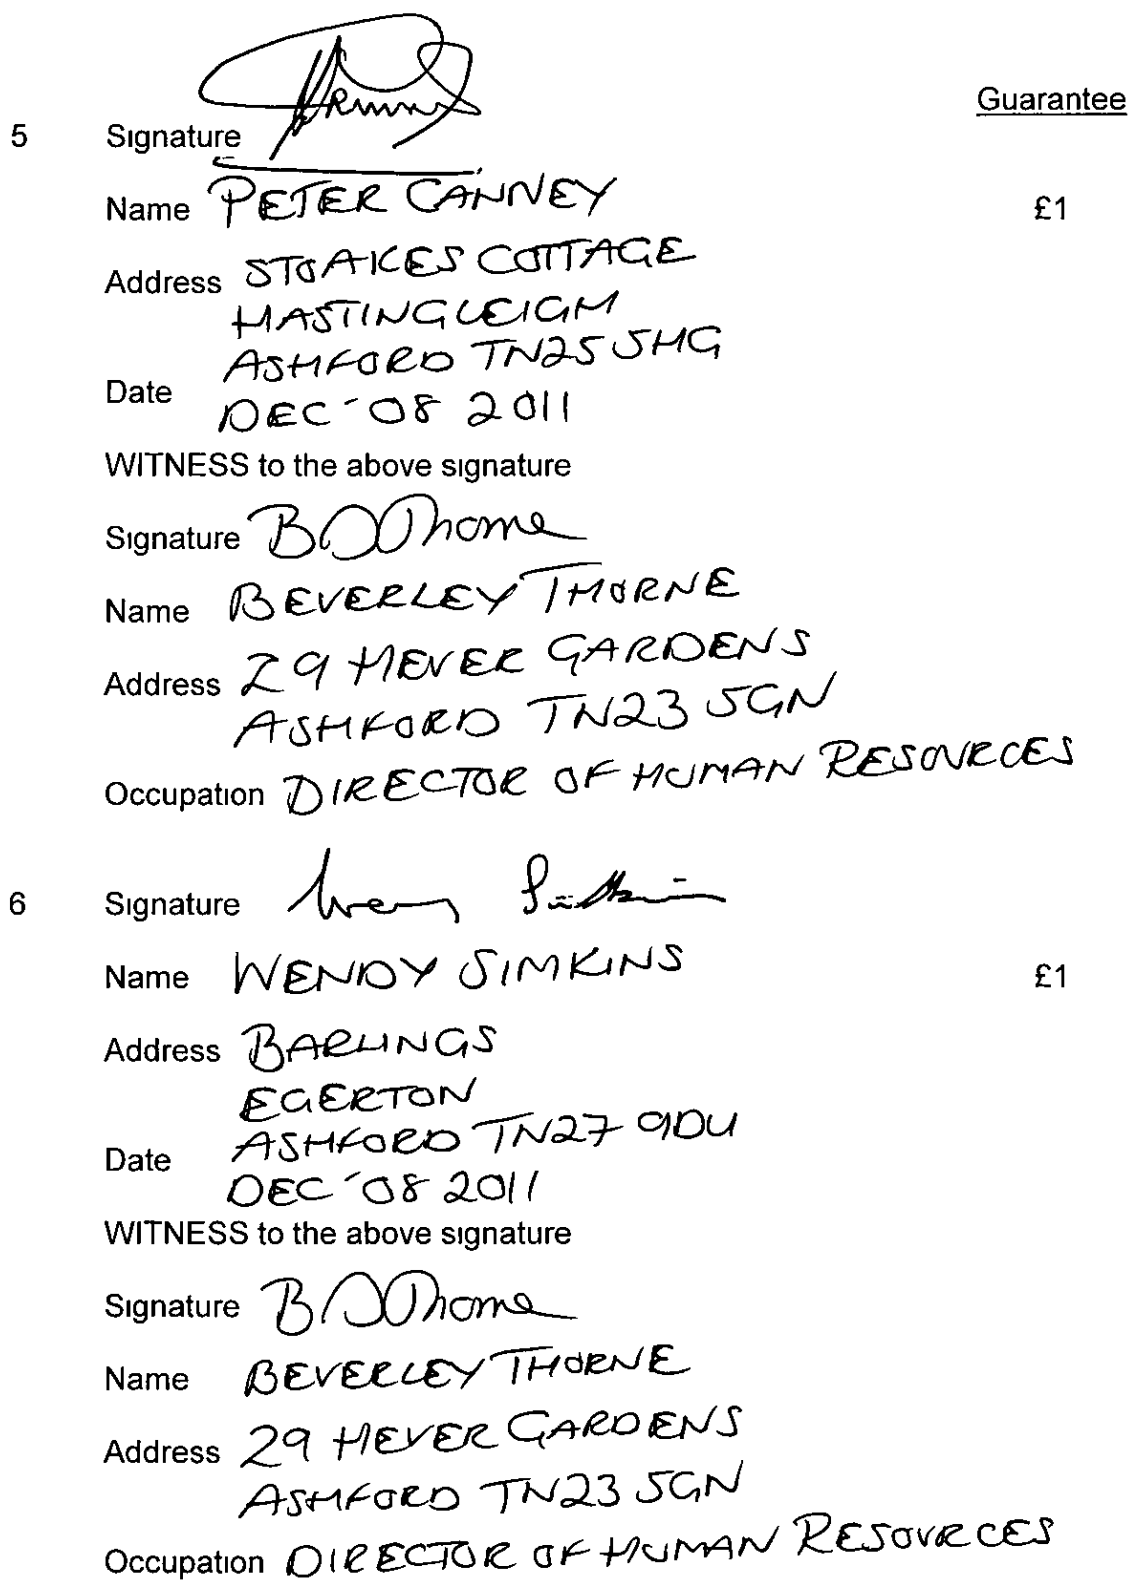 Guarantee
5 Signature
Name PETER CANNEY £1
Address STOAKES COTTAGE
HASTINGLEIGH
ASHFORD TN25 5HG
Date
DEC '08 2011
WITNESS to the above signature
Signature B Thorne
Name BEVERLEY THORNE
Address 29 HEVER GARDENS
ASHFORD TN23 5GN
Occupation DIRECTOR OF HUMAN RESOURCES
6 Signature Wendy Simkins
Name WENDY SIMKINS £1
Address BARLINGS
EGERTON
ASHFORD TN27 9DU
Date
DEC '08 2011
WITNESS to the above signature
Signature B Thorne
Name BEVERLEY THORNE
Address 29 HEVER GARDENS
ASHFORD TN23 5GN
Occupation DIRECTOR OF HUMAN RESOURCES